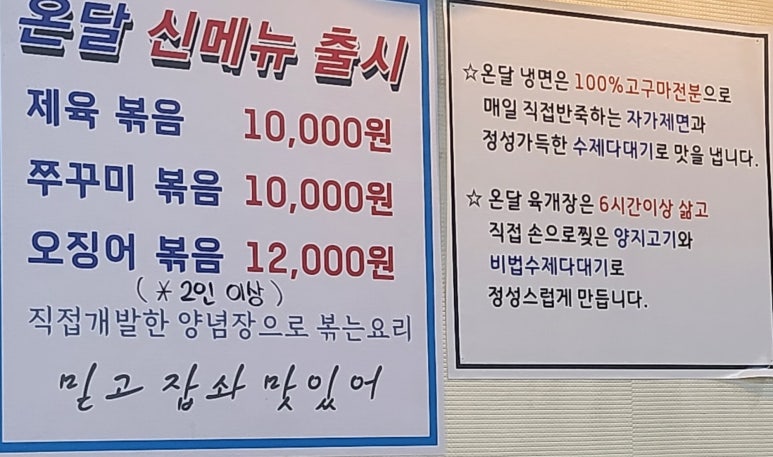 온달 신메뉴 출시
제육 볶음 10,000원
쭈꾸미 볶음 10,000원
오징어 볶음 12,000원
(※ 2인 이상)
직접개발한 양념장으로 볶는요리
믿고 잡솨 맛있어
☆온달 냉면은 100%고구마전분으로
매일 직접반죽하는 자가제면과
정성가득한 수제다대기로 맛을 냅니다.
☆ 온달 육개장은 6시간이상 삶고
직접 손으로찢은 양지고기와
비법수제다대기로
정성스럽게 만듭니다.